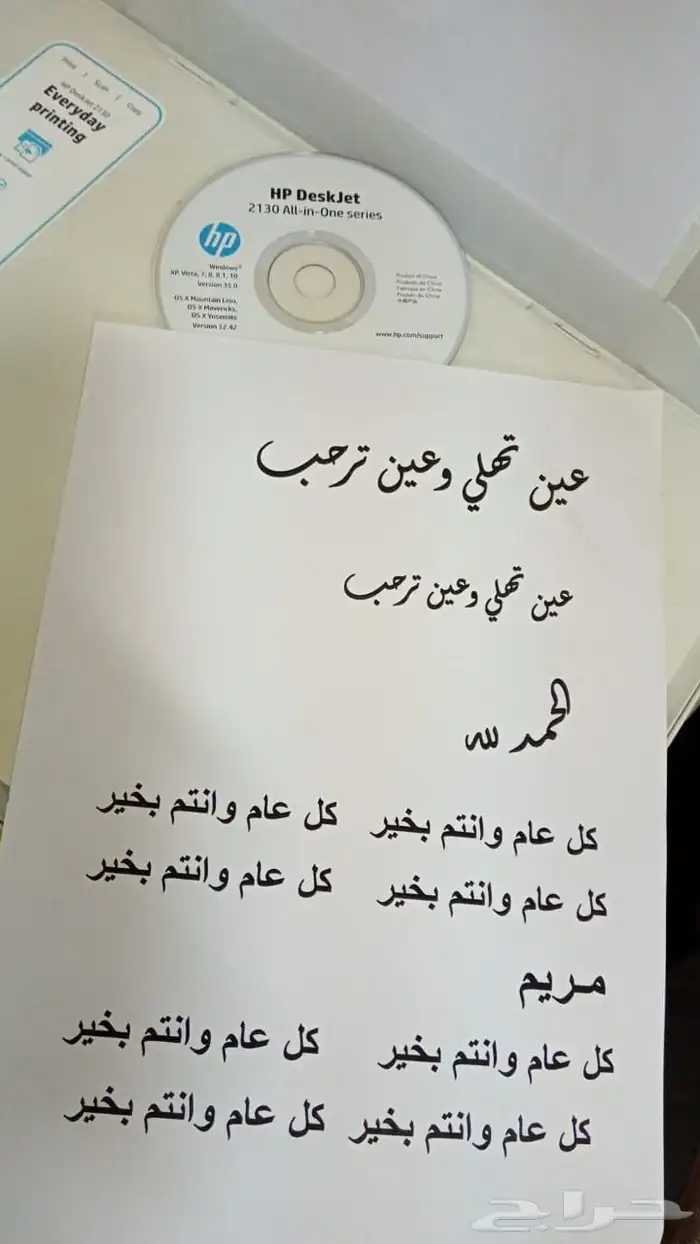 Print / Scan / Copy
HP DeskJet 2130
Everyday
printing
HP DeskJet
2130 All-in-One series
hp
Windows®
XP, Vista, 7, 8, 8.1, 10
OS X Mountain Lion,
OS X Mavericks,
OS X Yosemite
Version 12.42
Product of China
www.hp.com/support
عين تهلي وعين ترحب
عين تهلي وعين ترحب
الحمد لله
كل عام وانتم بخير كل عام وانتم بخير
كل عام وانتم بخير كل عام وانتم بخير
مريم
كل عام وانتم بخير كل عام وانتم بخير
كل عام وانتم بخير كل عام وانتم بخير
حراج